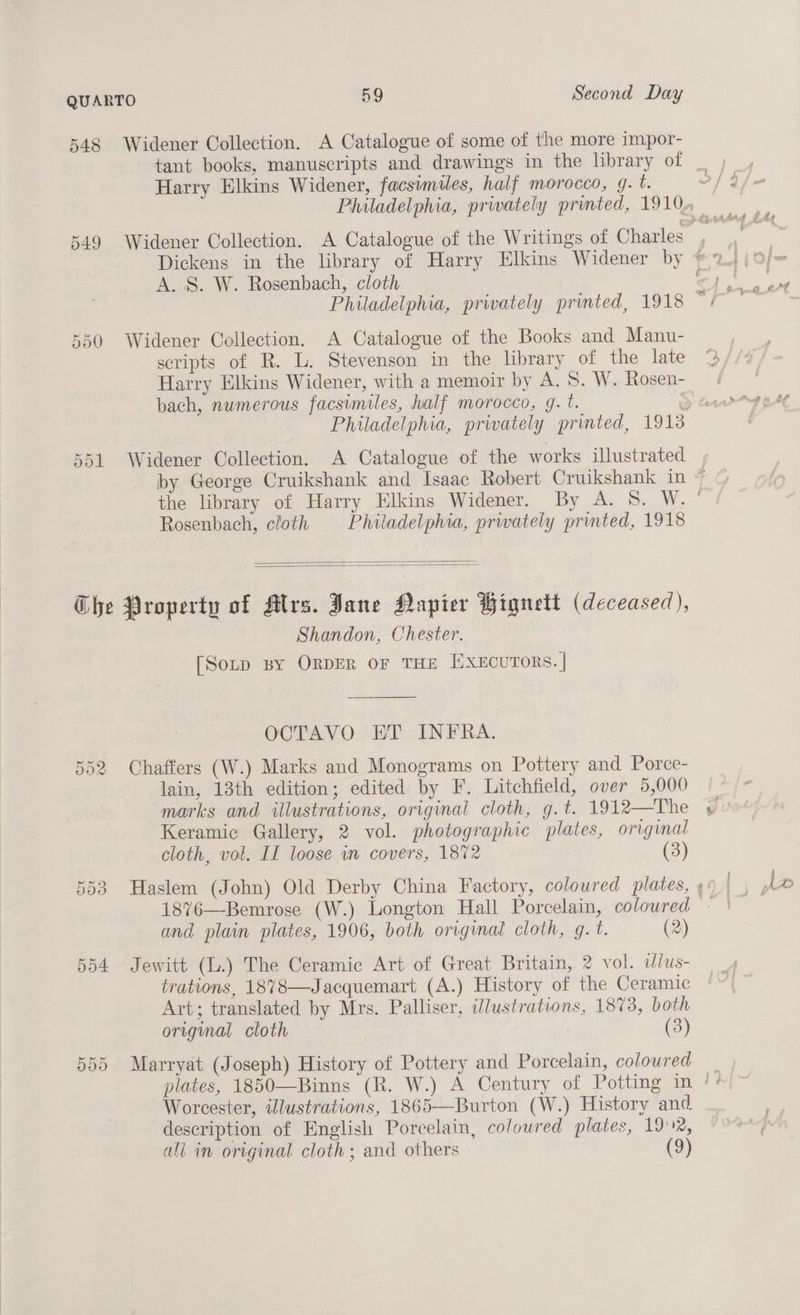 QUARTO 59 Second Day
548 Widener Collection. A Catalogue of some of the more impor-
tant books, manuscripts and drawings in the library of
Harry Elkins Widener, facsimiles, half morocco, g. t.
Philadelphia, privately printed, 1910
549 Widener Collection. A Catalogue of the Writings of Charles
Dickens in the library of Harry Elkins Widener by
A. S. W. Rosenbach, cloth
Philadelphia, privately printed, 1918
550 Widener Collection. A Catalogue of the Books and Manu-
scripts of R. L. Stevenson in the library of the late
Harry Elkins Widener, with a memoir by A. S. W. Rosen-
bach, numerous facsimiles, half morocco, g. t.
Philadelphia, privately printed, 1913
551 Widener Collection. A Catalogue of the works illustrated
by George Cruikshank and Isaac Robert Cruikshank in
the library of Harry Elkins Widener. By A. S. W.
Rosenbach, cloth Philadelphia, privately printed, 1918
The Property of Mrs. Jane Napier Hignett (deceased),
Shandon, Chester.
[SOLD BY ORDER OF THE EXECUTORS.]
OCTAVO ET INFRA.
552 Chaffers (W.) Marks and Monograms on Pottery and Porce-
lain, 13th edition; edited by F. Litchfield, over 5,000
marks and illustrations, original cloth, g. t. 1912—The
Keramic Gallery, 2 vol. photographic plates, original
cloth, vol. II loose in covers, 1872 (3)
553 Haslem (John) Old Derby China Factory, coloured plates,
1876—Bemrose (W.) Longton Hall Porcelain, coloured
and plain plates, 1906, both original cloth, g. t. (2)
554 Jewitt (L.) The Ceramic Art of Great Britain, 2 vol. illus-
trations, 1878—Jacquemart (A.) History of the Ceramic
Art; translated by Mrs. Palliser, illustrations, 1873, both
original cloth (3)
555 Marryat (Joseph) History of Pottery and Porcelain, coloured
plates, 1850—Binns (R. W.) A Century of Potting in
Worcester, illustrations, 1865—Burton (W.) History and
description of English Porcelain, coloured plates, 1902,
all in original cloth; and others (9)